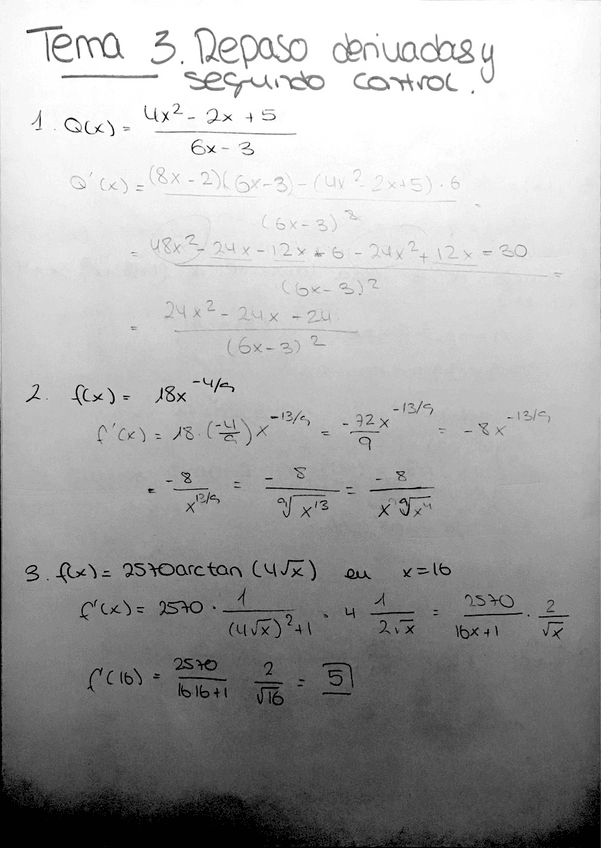 Tema 3. Repaso derivadas y
segundo control.
1. Q(x) = (4x² - 2x + 5)/(6x - 3)
Q'(x) = ((8x - 2)(6x - 3) - (4x² - 2x + 5) · 6)/(6x - 3)²
= (48x² - 24x - 12x + 6 - 24x² + 12x - 30)/(6x - 3)² =
= (24x² - 24x - 24)/(6x - 3)²
2. f(x) = 18x^(-4/9)
f'(x) = 18 · (-4/9) x^(-13/9) = -72x^(-13/9)/9 = -8x^(-13/9)
= -8/x^(13/9) = -8/⁹√x¹³ = -8/(x ⁹√x⁴)
3. f(x) = 2570 arctan (4√x) en x = 16
f'(x) = 2570 · 1/((4√x)² + 1) · 4 1/(2√x) = 2570/(16x + 1) · 2/√x
f'(16) = 2570/(16 16 + 1) 2/√16 = 5